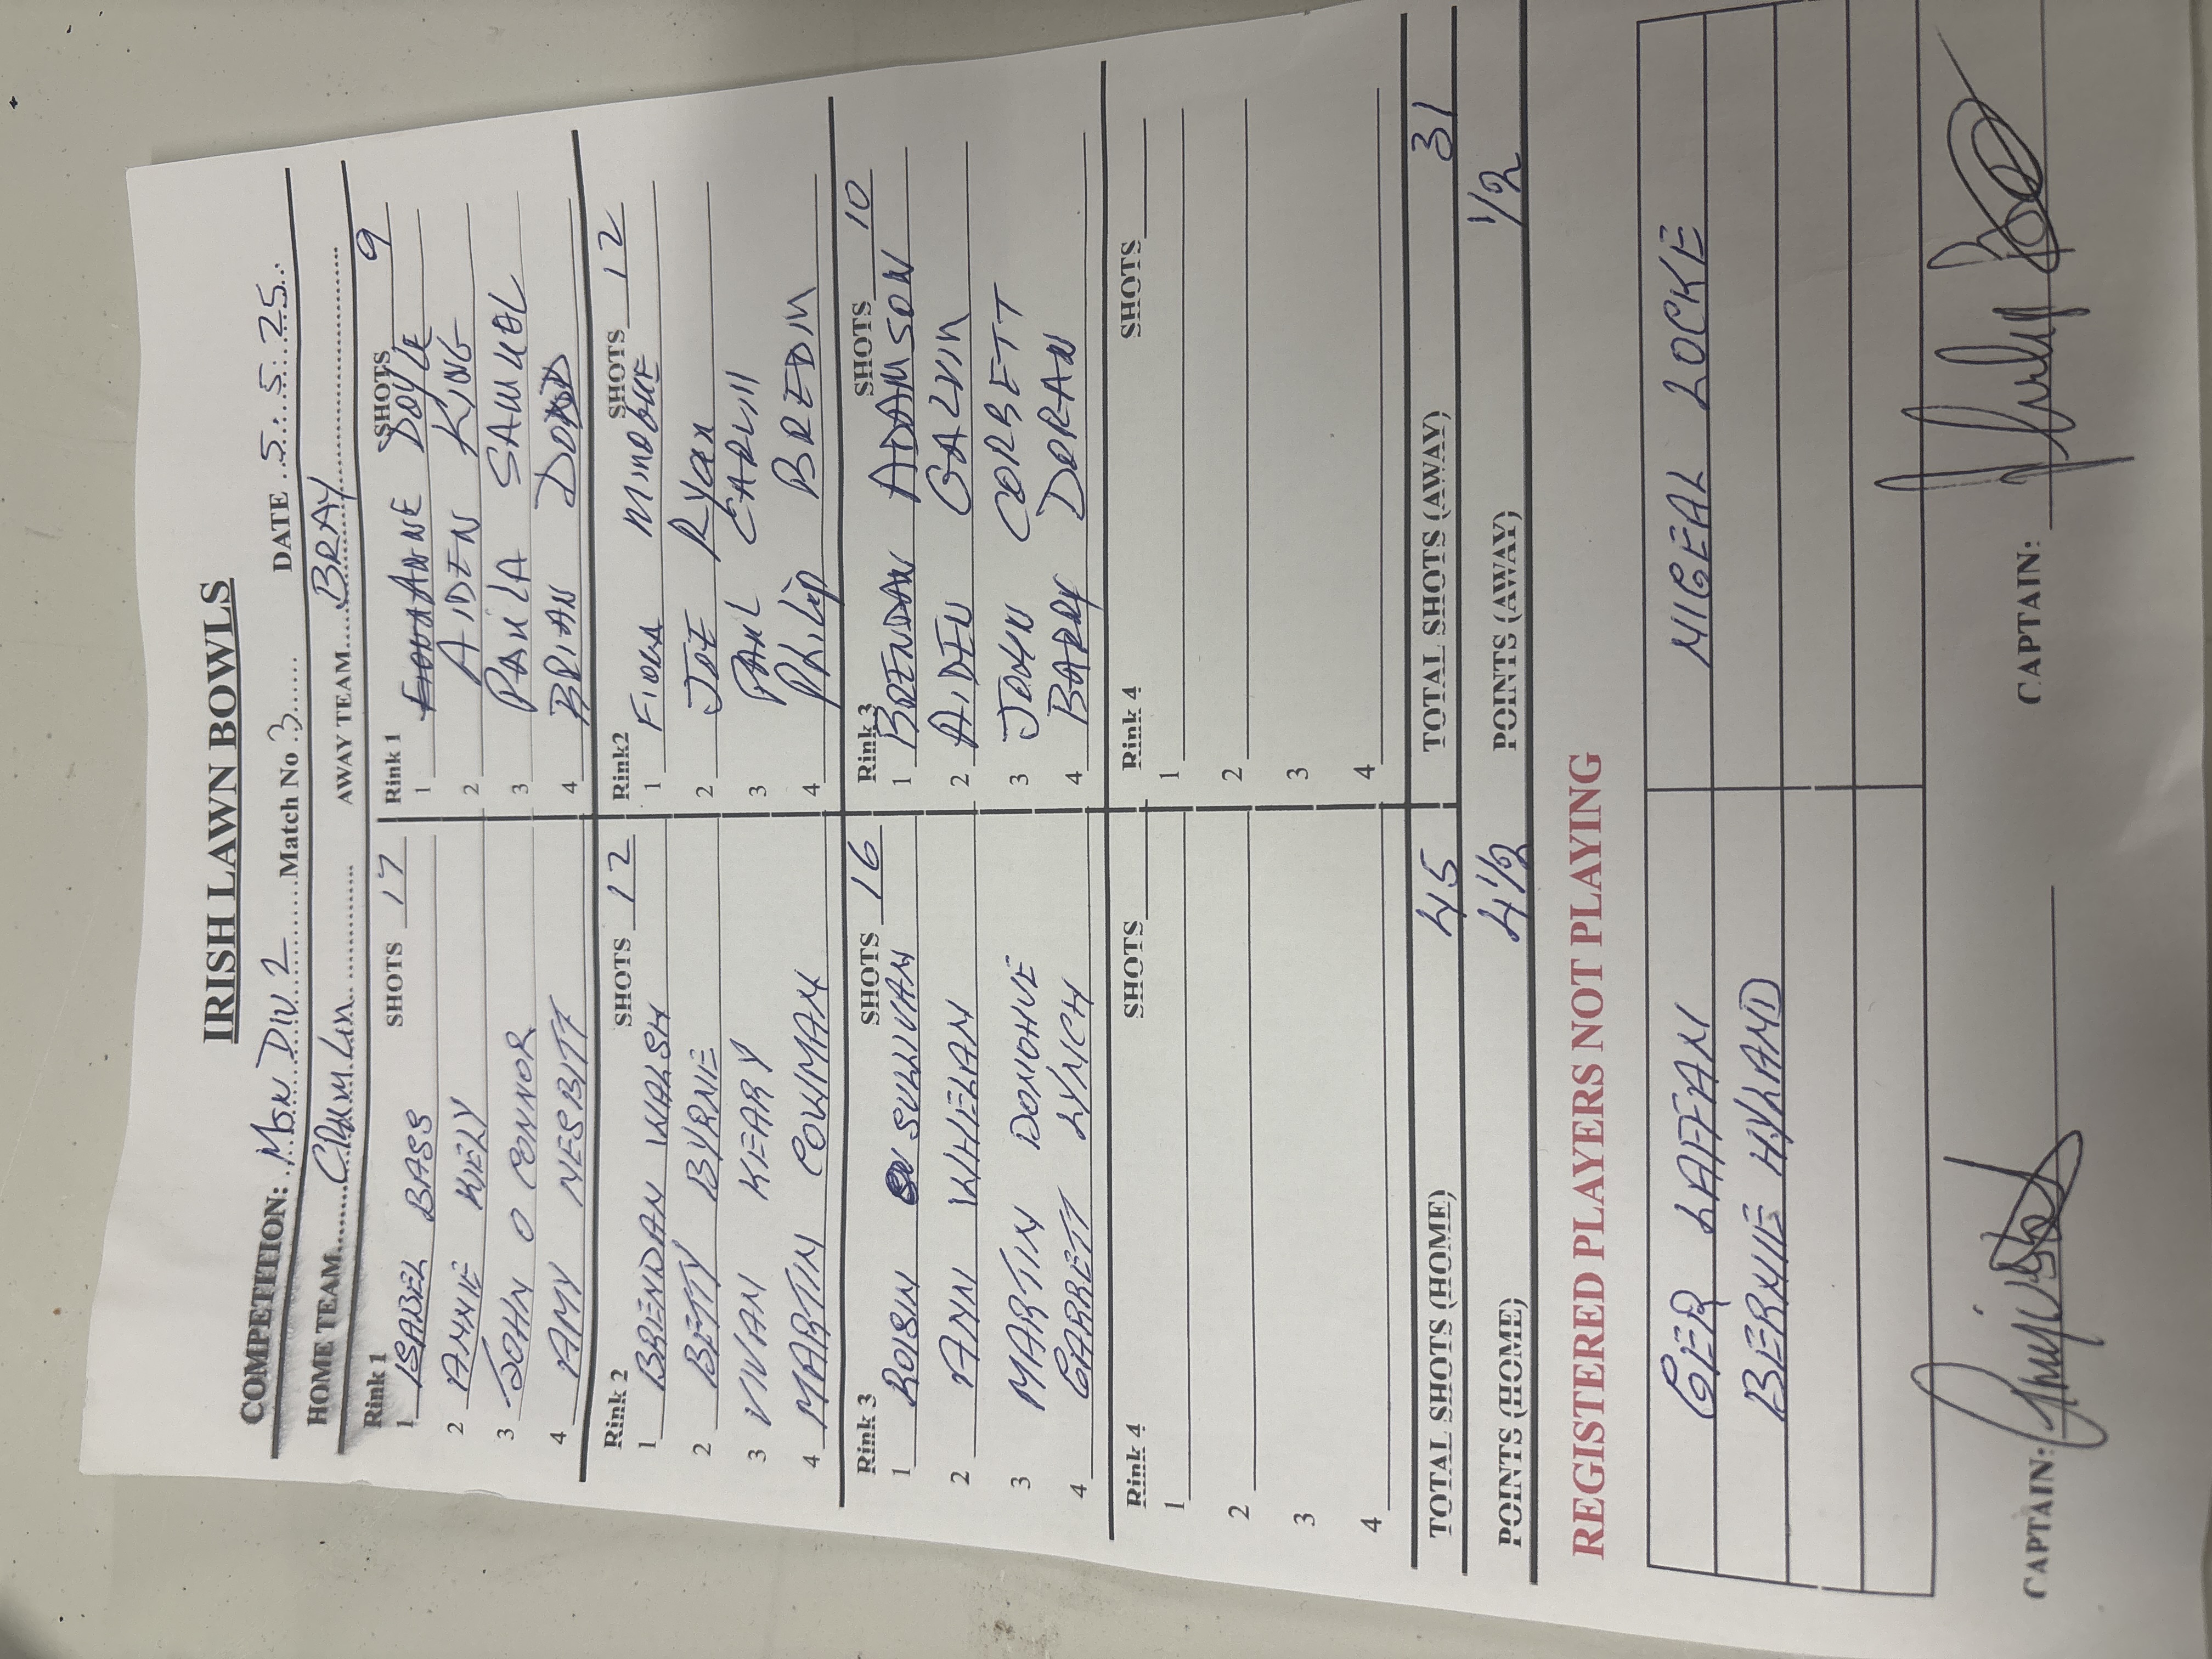 IRISH LAWN BOWLS
COMPETITION: Mon DIV 2 Match No 3 DATE 5.5.25
HOME TEAM AWAY TEAM BRAY
Rink 1 SHOTS 17
1 ISABEL BASS
2 ANNIE KIELY
3 JOHN O CONNOR
4 AMY NESBITT
Rink 1 SHOTS 9
1 ANNE DOYLE
2 AIDEN KING
3 PAULA SAMUEL
4 BRIAN
Rink 2 SHOTS 12
1 BRENDAN WALSH
2 BETTY BYRNE
3 VIVAN KEARY
4 MARTIN COWMAN
Rink2 SHOTS 12
1 FIONA MINOGUE
2 JOE Ryan
3 PAUL CARVILL
4 PhiLip BREDIN
Rink 3 SHOTS 16
1 ROISIN SULLIVAN
2 ANN WHELAN
3 MARTIN DONOHUE
4 GARRETT LYNCH
Rink 3 SHOTS 10
1 BRENDAN ADAMSON
2 AIDEN GALVIN
3 JOHN CORBETT
4 BARRY DORAN
Rink 4 SHOTS
1
2
3
4
Rink 4 SHOTS
1
2
3
4
TOTAL SHOTS (HOME) 45 TOTAL SHOTS (AWAY) 31
POINTS (HOME) 4 1/2 POINTS (AWAY) 1/2
REGISTERED PLAYERS NOT PLAYING
GER LAFFAN NIGEAL LOCKE
BERNIE HYLAND
CAPTAIN: CAPTAIN: